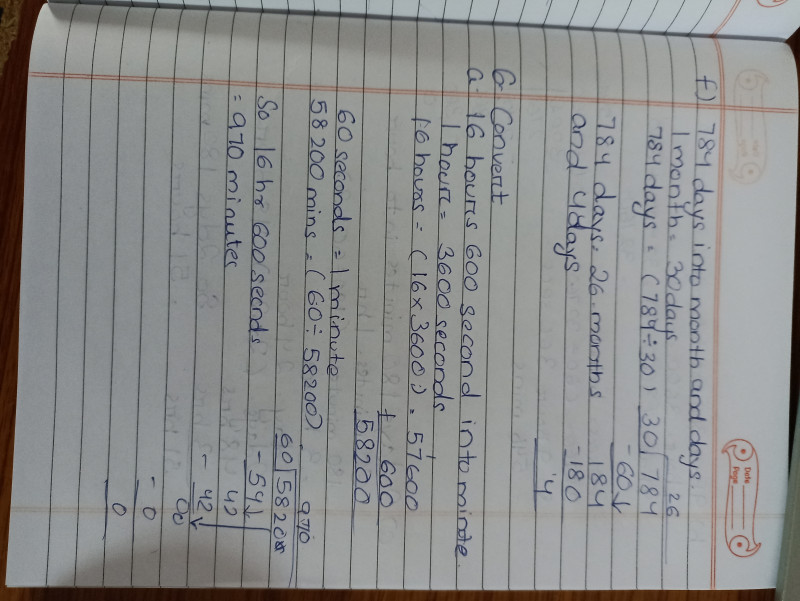 Date
Page
f) 784 days into month and days.
1 month = 30 days
784 days = (784 ÷ 30)
26
30 784
-60↓
184
-180
4
784 days = 26 months
and 4 days
6 Convert
a. 16 hours 600 second into minute.
1 hour = 3600 seconds
16 hours = (16 x 3600) = 57600
+ 600
58200
60 seconds = 1 minute
58200 mins = (60 ÷ 58200)
970
60 58200
- 54↓
42
- 42↓
00
- 0
0
So 16 hr 600 seconds
= 970 minutes